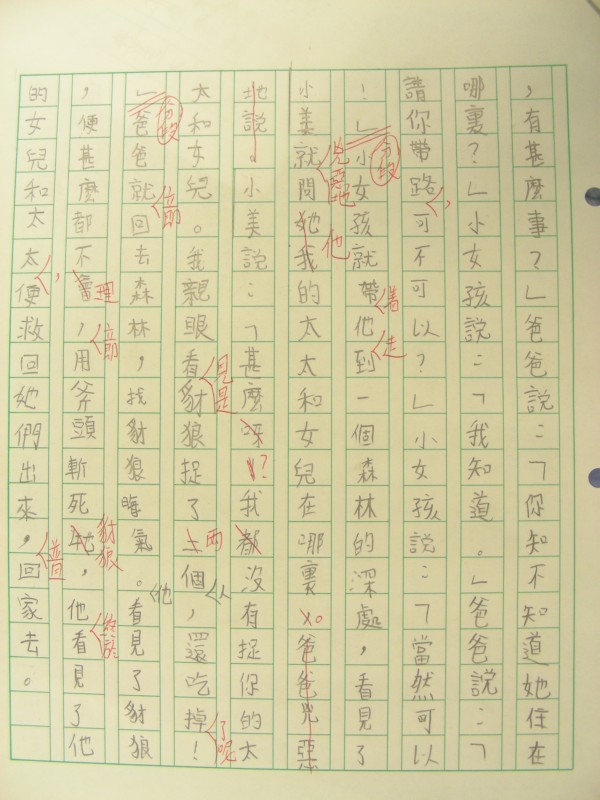 ，有甚麼事？」爸爸說：「你知不知道她住在
哪裏？」小女孩說：「我知道。」爸爸說：「
請你帶路，可不可以？」小女孩說：「當然可以
！」小女孩就帶他到一個森林的深處，看見了
分段
着
走
小美就問她我的太太和女兒在哪裏。爸爸兇惡
兇惡地
他
地說。小美說：「甚麼呀？我都沒有捉你的太
太和女兒。我親眼看豺狼捉了上個人，還吃掉！
但是
兩
了呢
」爸爸就回去森林，找豺狼晦氣。他看見了豺狼
分段
立即
，便甚麼都不會，用斧頭斬死牠，他看見了他
理
立即
豺狼
終於
的女兒和太太，便救回她們出來，回家去。